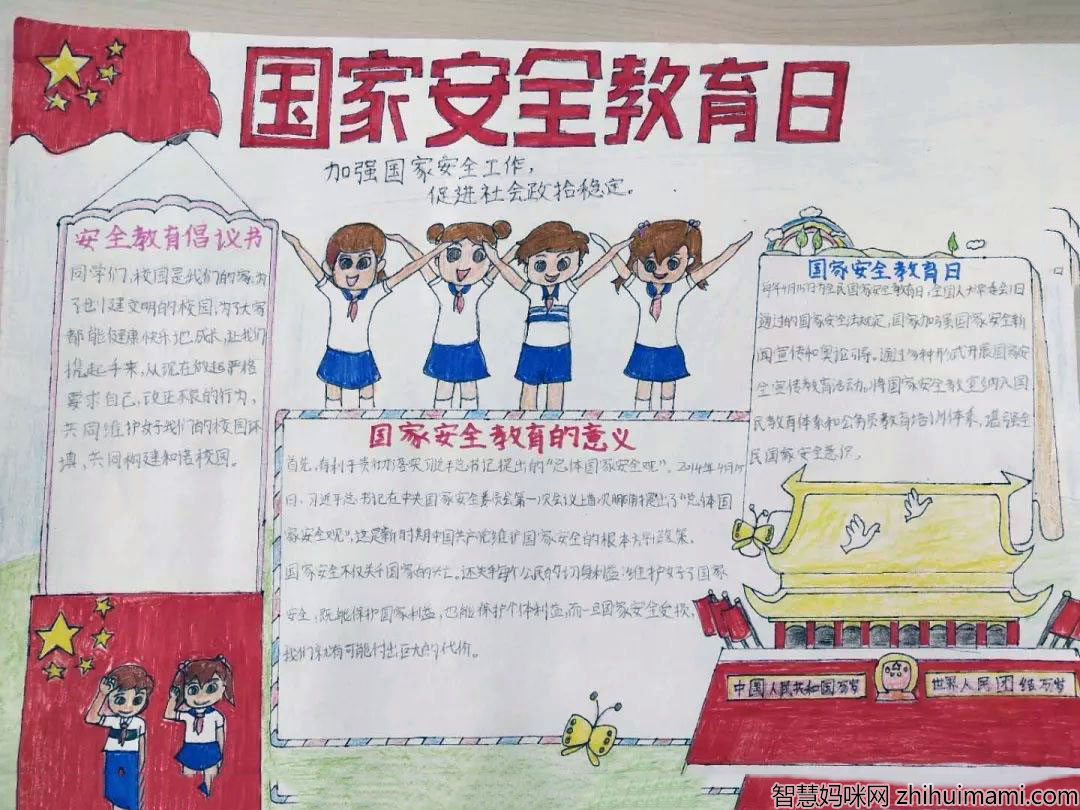 国家安全教育日
加强国家安全工作，
促进社会政治稳定。
安全教育倡议书
同学们，校园是我们的家，为
了创建文明的校园，为了大家
都能健康快乐地成长，让我们
携起手来，从现在做起严格
要求自己，改正不良的行为，
共同维护好我们的校园环
境，共同构建和谐校园。
国家安全教育的意义
首先，有利于贯彻落实习近平总书记提出的“总体国家安全观”。2014年4月15
日，习近平总书记在中央国家安全委员会第一次会议上首次鲜明提出了“总体国
家安全观”，这是新时期中国共产党维护国家安全的根本方针政策。
国家安全不仅关乎国家的兴亡。还关乎每个公民的切身利益，维护好了国家
安全，既能保护国家利益，也能保护个体利益，而一旦国家安全受损，
我们就有可能付出巨大的代价。
国家安全教育日
每年4月15日为全民国家安全教育日，全国人大常委会1日
通过的国家安全法规定，国家加强国家安全新
闻宣传和舆论引导。通过多种形式开展国家安
全宣传教育活动，将国家安全教育纳入国
民教育体系和公务员教育培训体系，增强全
民国家安全意识。
中国人民共和国万岁
世界人民团结万岁
智慧妈咪网 zhihuimami.com